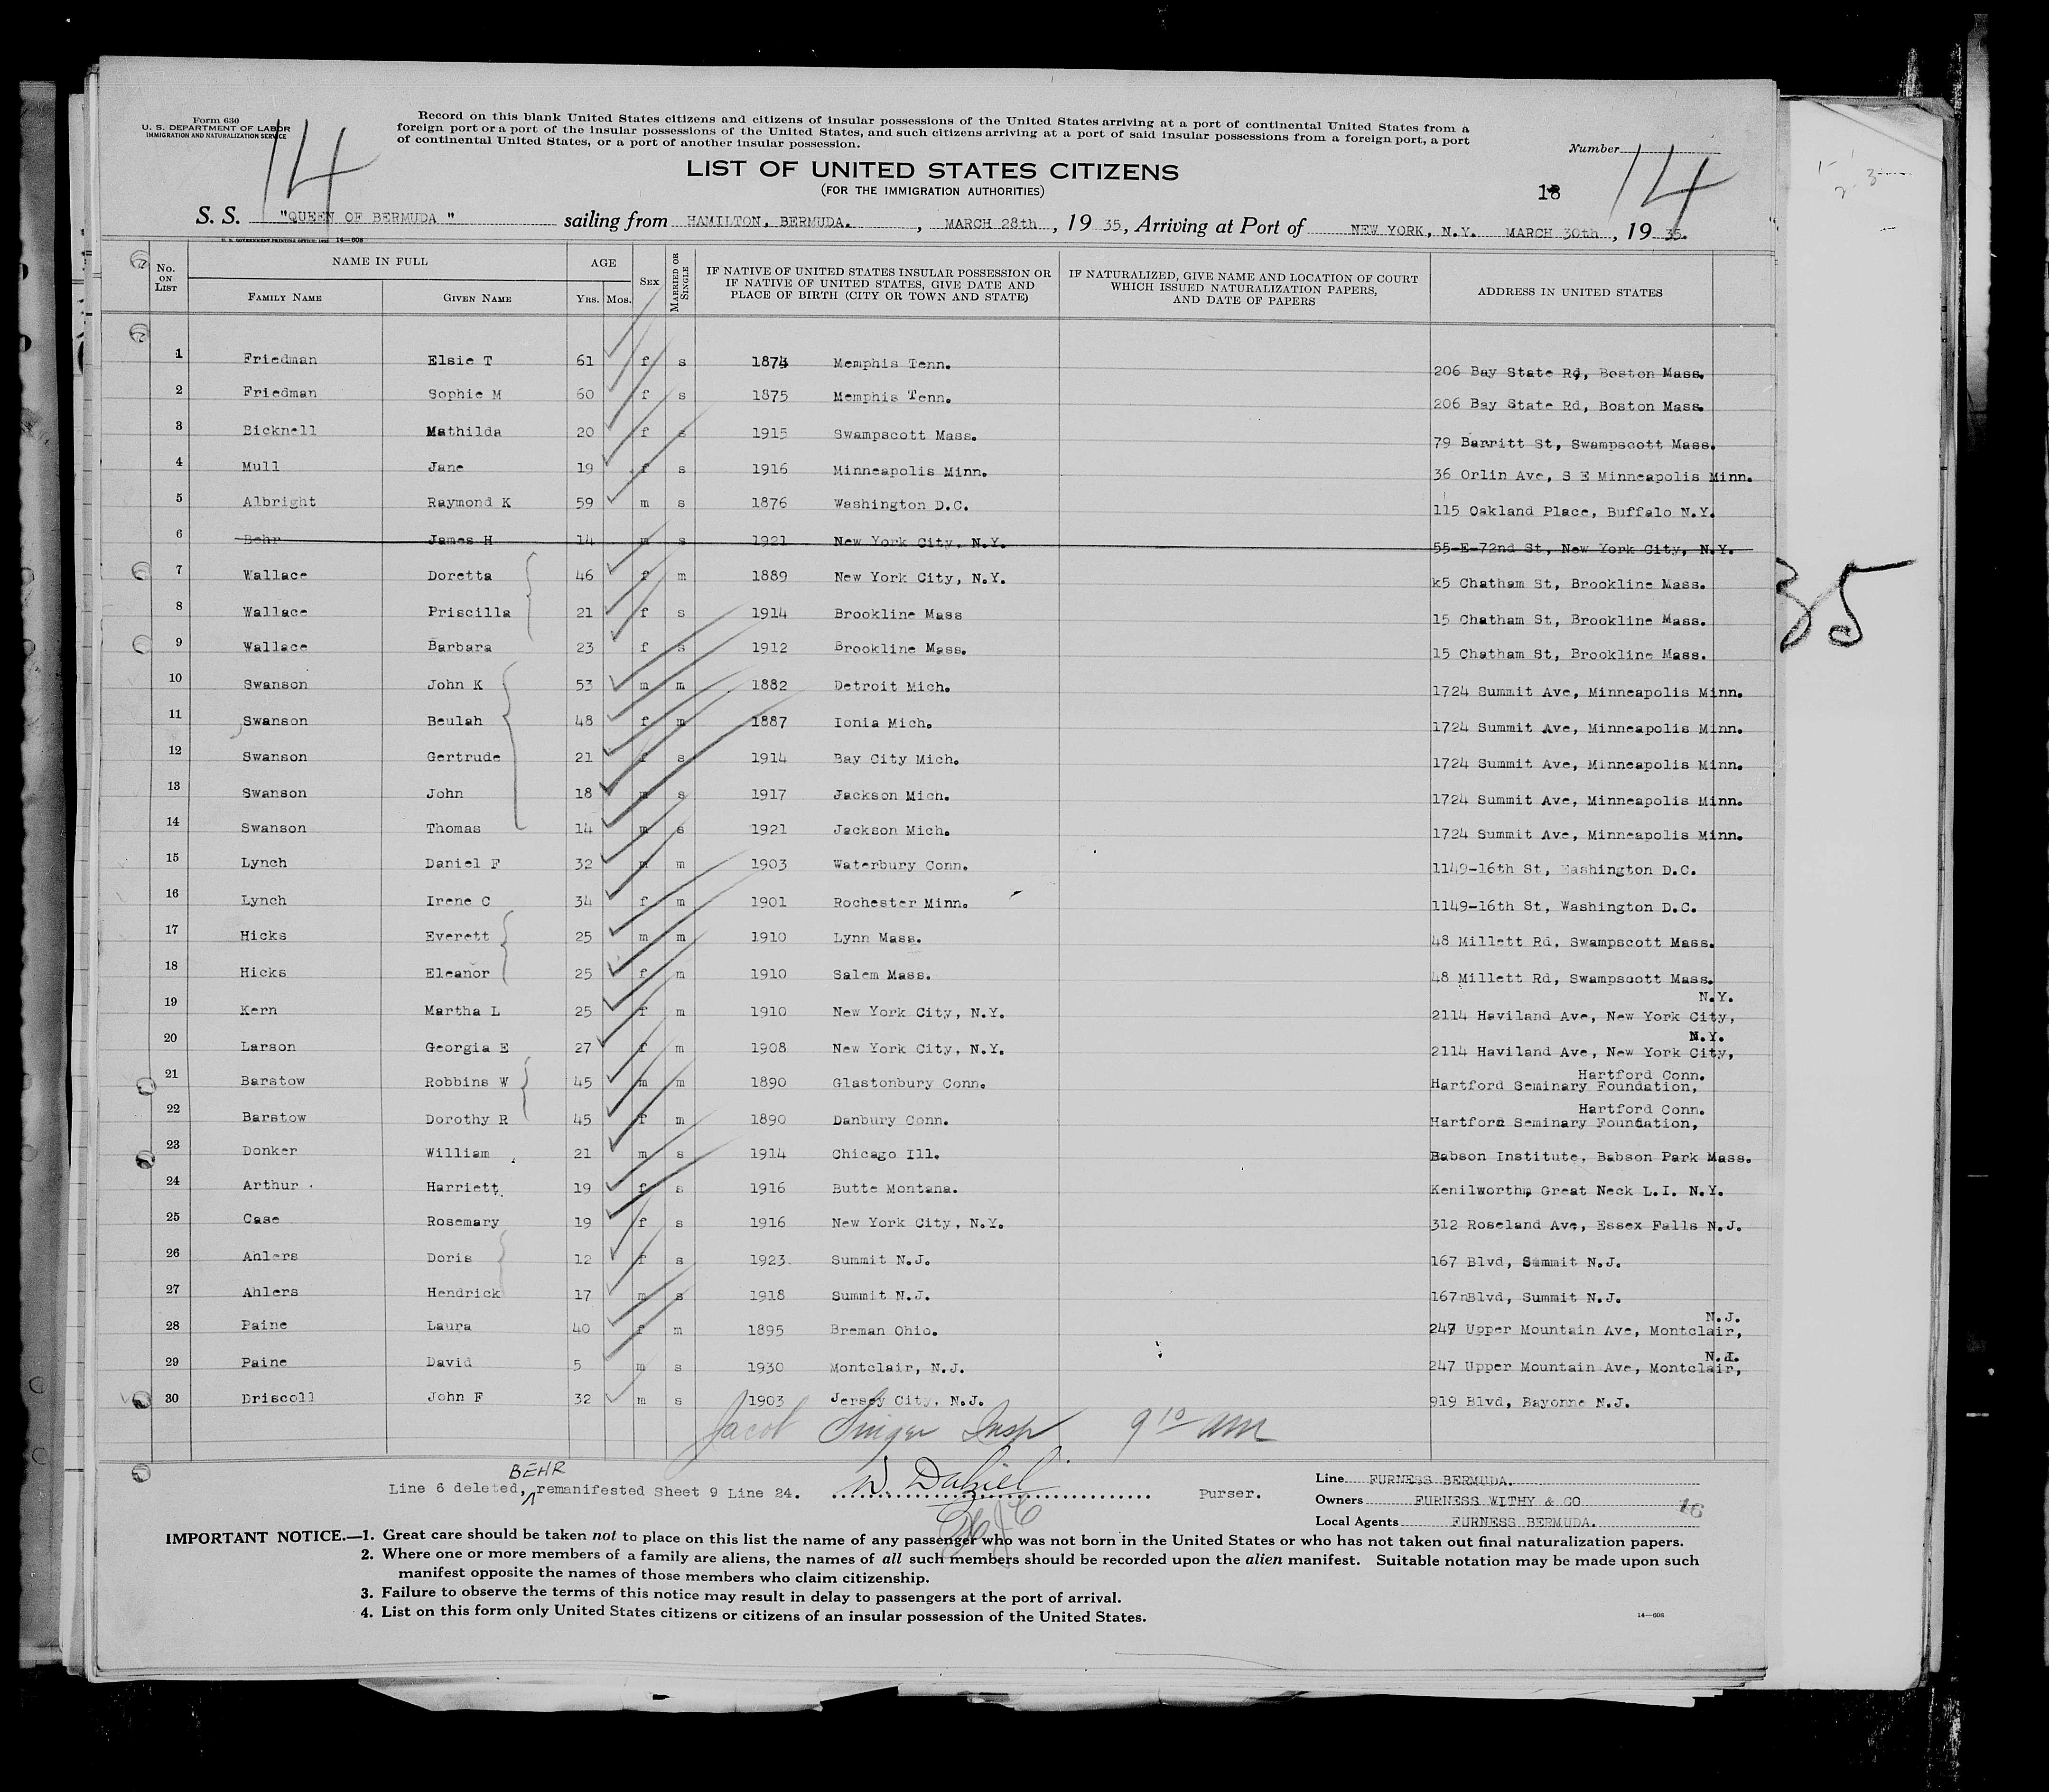 Form 630
U. S. DEPARTMENT OF LABOR
IMMIGRATION AND NATURALIZATION SERVICE
14
Record on this blank United States citizens and citizens of insular possessions of the United States arriving at a port of continental United States from a
foreign port or a port of the insular possessions of the United States, and such citizens arriving at a port of said insular possessions from a foreign port, a port
of continental United States, or a port of another insular possession.
Number 14
LIST OF UNITED STATES CITIZENS
(FOR THE IMMIGRATION AUTHORITIES)
18
S. S. "QUEEN OF BERMUDA " sailing from HAMILTON, BERMUDA. , MARCH 28th , 19 35, Arriving at Port of NEW YORK, N.Y. MARCH 30th , 19 35.
U. S. GOVERNMENT PRINTING OFFICE: 1932 14—608
No. ON LIST
NAME IN FULL
FAMILY NAME GIVEN NAME
AGE
YRS. MOS.
SEX
MARRIED OR SINGLE
IF NATIVE OF UNITED STATES INSULAR POSSESSION OR
IF NATIVE OF UNITED STATES, GIVE DATE AND
PLACE OF BIRTH (CITY OR TOWN AND STATE)
IF NATURALIZED, GIVE NAME AND LOCATION OF COURT
WHICH ISSUED NATURALIZATION PAPERS,
AND DATE OF PAPERS
ADDRESS IN UNITED STATES
1 Friedman Elsie T 61 f s 1874 Memphis Tenn. 206 Bay State Rd, Boston Mass.
2 Friedman Sophie M 60 f s 1875 Memphis Tenn. 206 Bay State Rd, Boston Mass.
3 Bicknell Mathilda 20 f s 1915 Swampscott Mass. 79 Barritt St, Swampscott Mass.
4 Mull Jane 19 f s 1916 Minneapolis Minn. 36 Orlin Ave, S E Minneapolis Minn.
5 Albright Raymond K 59 m s 1876 Washington D.C. 115 Oakland Place, Buffalo N.Y.
6 Behr James H 14 m s 1921 New York City, N.Y. 55-E-72nd St, New York City, N.Y.
7 Wallace Doretta 46 f m 1889 New York City, N.Y. k5 Chatham St, Brookline Mass.
8 Wallace Priscilla 21 f s 1914 Brookline Mass 15 Chatham St, Brookline Mass.
9 Wallace Barbara 23 f s 1912 Brookline Mass. 15 Chatham St, Brookline Mass.
10 Swanson John K 53 m m 1882 Detroit Mich. 1724 Summit Ave, Minneapolis Minn.
11 Swanson Beulah 48 f m 1887 Ionia Mich. 1724 Summit Ave, Minneapolis Minn.
12 Swanson Gertrude 21 f s 1914 Bay City Mich. 1724 Summit Ave, Minneapolis Minn.
13 Swanson John 18 m s 1917 Jackson Mich. 1724 Summit Ave, Minneapolis Minn.
14 Swanson Thomas 14 m s 1921 Jackson Mich. 1724 Summit Ave, Minneapolis Minn.
15 Lynch Daniel F 32 m m 1903 Waterbury Conn. 1149-16th St, Washington D.C.
16 Lynch Irene C 34 f m 1901 Rochester Minn. 1149-16th St, Washington D.C.
17 Hicks Everett 25 m m 1910 Lynn Mass. 48 Millett Rd, Swampscott Mass.
18 Hicks Eleanor 25 f m 1910 Salem Mass. 48 Millett Rd, Swampscott Mass.
19 Kern Martha L 25 f m 1910 New York City, N.Y. 2114 Haviland Ave, New York City, N.Y.
20 Larson Georgia E 27 f m 1908 New York City, N.Y. 2114 Haviland Ave, New York City, N.Y.
21 Barstow Robbins W 45 m m 1890 Glastonbury Conn. Hartford Seminary Foundation, Hartford Conn.
22 Barstow Dorothy R 45 f m 1890 Danbury Conn. Hartford Seminary Foundation, Hartford Conn.
23 Donker William 21 m s 1914 Chicago Ill. Babson Institute, Babson Park Mass.
24 Arthur Harriett 19 f s 1916 Butte Montana. Kenilworth, Great Neck L.I. N.Y.
25 Case Rosemary 19 f s 1916 New York City, N.Y. 312 Roseland Ave, Essex Falls N.J.
26 Ahlers Doris 12 f s 1923 Summit N.J. 167 Blvd, Summit N.J.
27 Ahlers Hendrick 17 m s 1918 Summit N.J. 167 Blvd, Summit N.J.
28 Paine Laura 40 f m 1895 Breman Ohio. 247 Upper Mountain Ave, Montclair, N.J.
29 Paine David 5 m s 1930 Montclair, N.J. 247 Upper Mountain Ave, Montclair, N.J.
30 Driscoll John F 32 m s 1903 Jersey City, N.J. 919 Blvd, Bayonne N.J.
Jacob Singer Insp 9 10 am
35
BEHR
Line 6 deleted, remanifested Sheet 9 Line 24. Purser.
Line FURNESS BERMUDA.
Owners FURNESS WITHY & CO
Local Agents FURNESS BERMUDA.
IMPORTANT NOTICE.—1. Great care should be taken not to place on this list the name of any passenger who was not born in the United States or who has not taken out final naturalization papers.
2. Where one or more members of a family are aliens, the names of all such members should be recorded upon the alien manifest. Suitable notation may be made upon such
manifest opposite the names of those members who claim citizenship.
3. Failure to observe the terms of this notice may result in delay to passengers at the port of arrival.
4. List on this form only United States citizens or citizens of an insular possession of the United States.
14—608